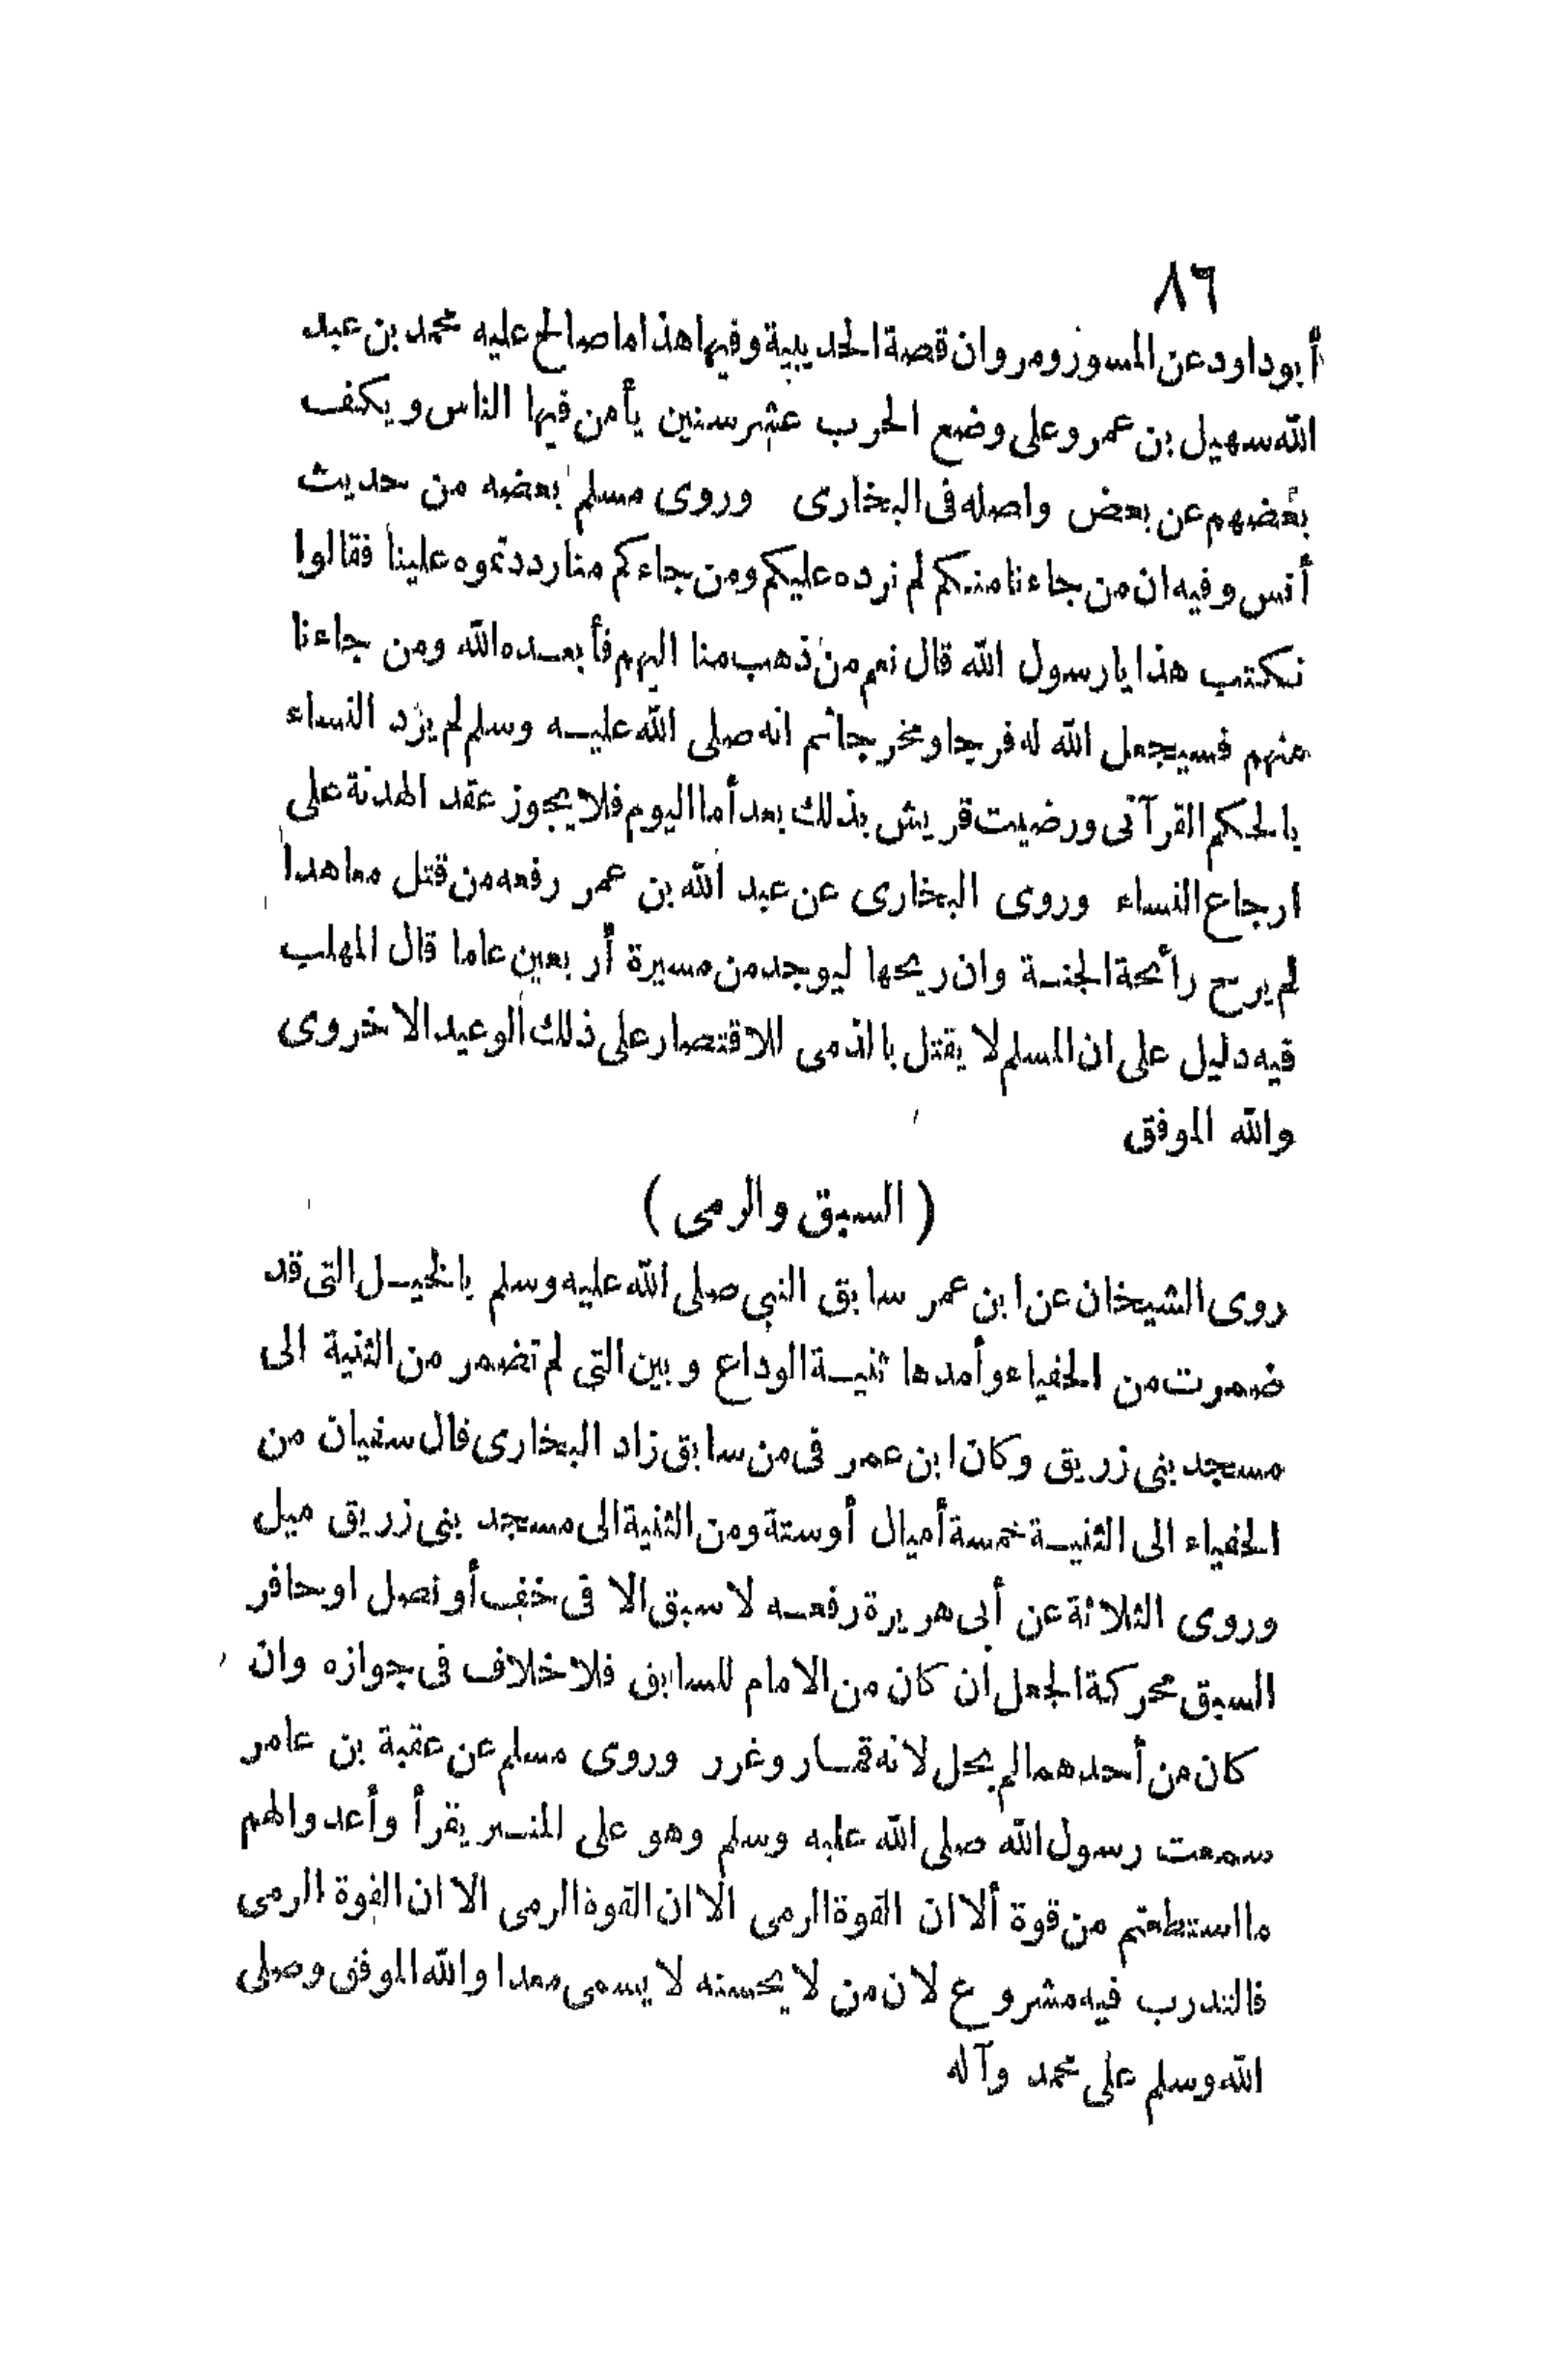 ٨٦
أبو داود عن المسور ومروان قصة الحديبية وفيها هذا ما صالح عليه محمد بن عبد
الله سهيل بن عمرو على وضع الحرب عشر سنين يأمن فيها الناس ويكف
بعضهم عن بعض واصله فى البخارى وروى مسلم بعضه من حديث
أنس وفيه ان من جاءنا منكم لم نرده عليكم ومن جاءكم منا رددتموه علينا فقالوا
نكتب هذا يا رسول الله قال نعم من ذهب منا اليهم فأبعده الله ومن جاءنا
منهم فسيجعل الله له فرجا ومخرجا ثم انه صلى الله عليه وسلم لم يرد النساء
بالحكم القرآنى ورضيت قريش بذلك بعد أما اليوم فلا يجوز عقد الهدنة على
ارجاع النساء وروى البخارى عن عبد الله بن عمر رفعه من قتل معاهدا
لم يرح رائحة الجنة وان ريحها ليوجد من مسيرة أربعين عاما قال المهلب
فيه دليل على ان المسلم لا يقتل بالذمى للاقتصار على ذلك الوعيد الاخروى
والله الموفق
( السبق والرمى )
روى الشيخان عن ابن عمر سابق النبى صلى الله عليه وسلم بالخيل التى قد
ضمرت من الحفياء وأمدها ثنية الوداع وبين التى لم تضمر من الثنية الى
مسجد بنى زريق وكان ابن عمر فى من سابق زاد البخارى قال سفيان من
الحفياء الى الثنية خمسة أميال أو ستة ومن الثنية الى مسجد بنى زريق ميل
وروى الثلاثة عن أبى هريرة رفعه لا سبق الا فى خف أو نصل او حافر
السبق محركة الجعل ان كان من الامام للسابق فلا خلاف فى جوازه وان
كان من أحدهما لم يحل لانه قمار وغرر وروى مسلم عن عقبة بن عامر
سمعت رسول الله صلى الله عليه وسلم وهو على المنبر يقرأ وأعدوا لهم
ما استطعتم من قوة ألا ان القوة الرمى الا ان القوة الرمى الا ان القوة الرمى
فالتدرب فيه مشروع لان من لا يحسنه لا يسمى معدا والله الموفق وصلى
الله وسلم على محمد وآله